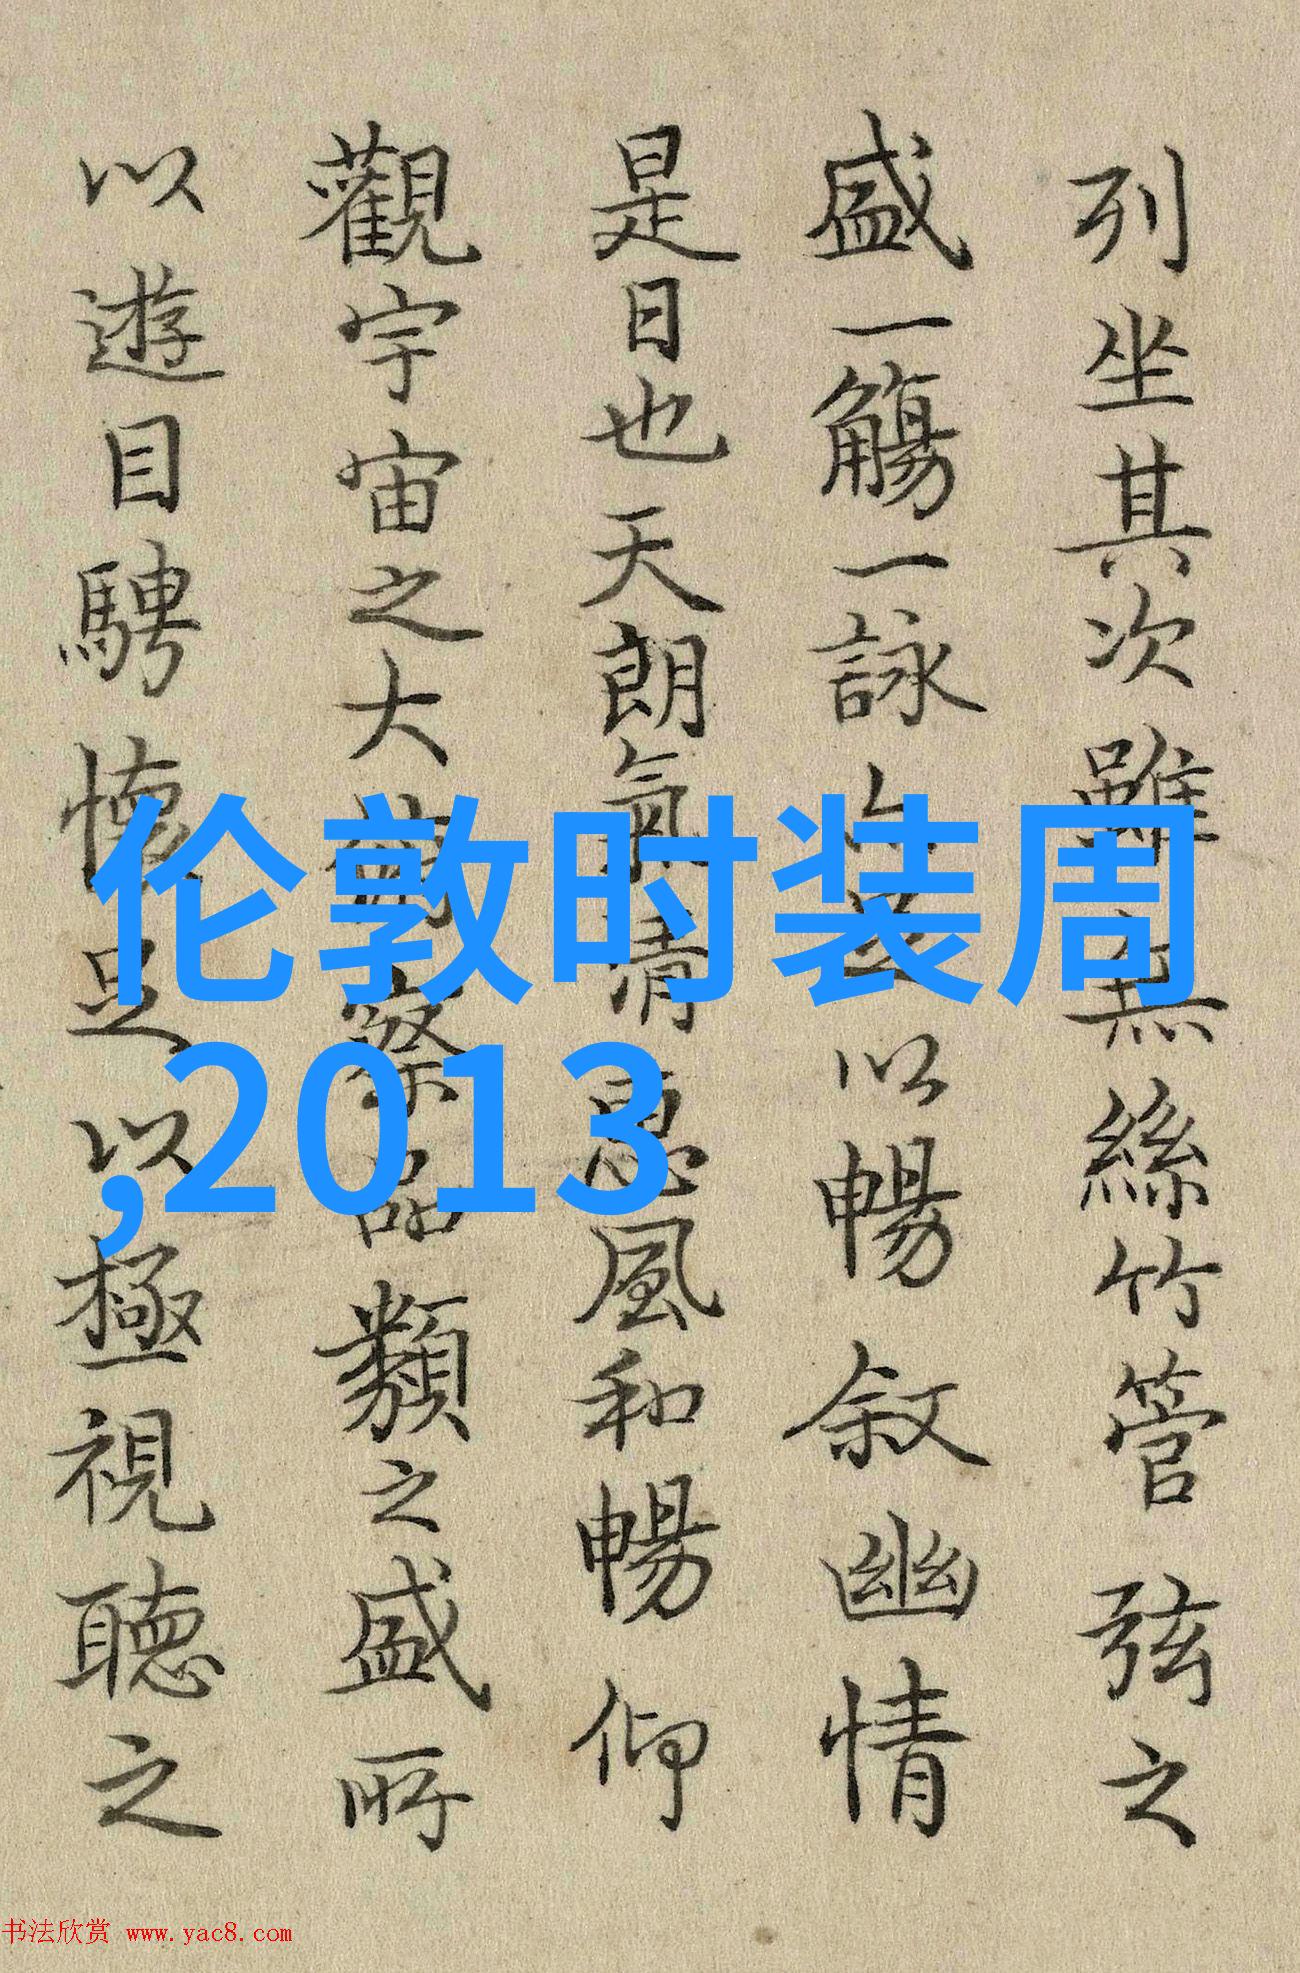 列坐其次雖無絲竹管弦之
盛一觴一詠以暢叙幽情
是日也天朗氣清惠風和暢仰
觀宇宙之大察品類之盛所
以遊目騁懷足以極視聽之
伦敦时装周
,2013
书法欣赏 www.yac8.com